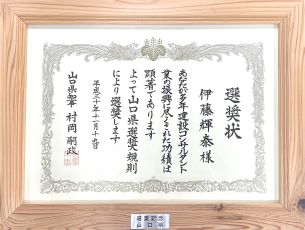 選奨状
伊藤輝泰様
あなたは多年建設コンサルタント
業の振興に尽くされた功績は
顕著であります
よって山口県選奨規則
により選奨します
平成三十年十一月十六日
山口県知事 村岡嗣政
選奨記念
山口県